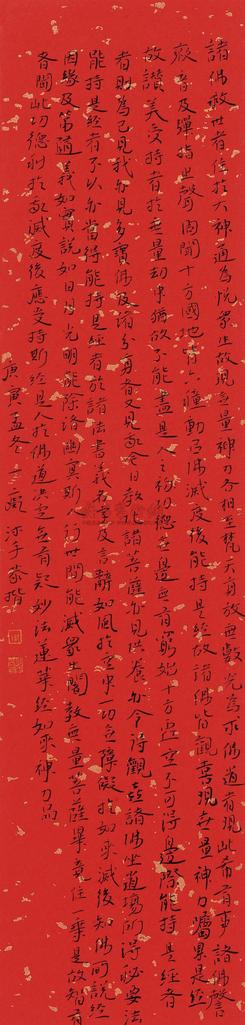 諸佛救世者住於大神通為悅眾生故現無量神力舌相至梵天身放無數光為求佛道者現此希有事諸佛謦
欬聲及彈指之聲周聞十方國地皆六種動以佛滅度後能持是經故諸佛皆歡喜現無量神力囑累是經
故讚美受持者於無量劫中猶故不能盡是人之功德無邊無有窮如十方虛空不可得邊際能持是經者
者則為已見我亦見多寶佛及諸分身者又見我今日教化諸菩薩亦見供養亦令得歡喜諸佛坐道場所得秘要法
能持是經者不久亦當得能持是經者於諸法書義名字及言辭如風於空中一切無障礙於如來滅後知佛所說經
因緣及第隨義如實說如日月光明能除諸幽冥斯人行世間能滅眾生闇教無量菩薩畢竟住一乘是故智有
者聞此功德利於我滅度後應受持斯經是人於佛道決定無有疑妙法蓮華經如來神力品
庚寅孟冬